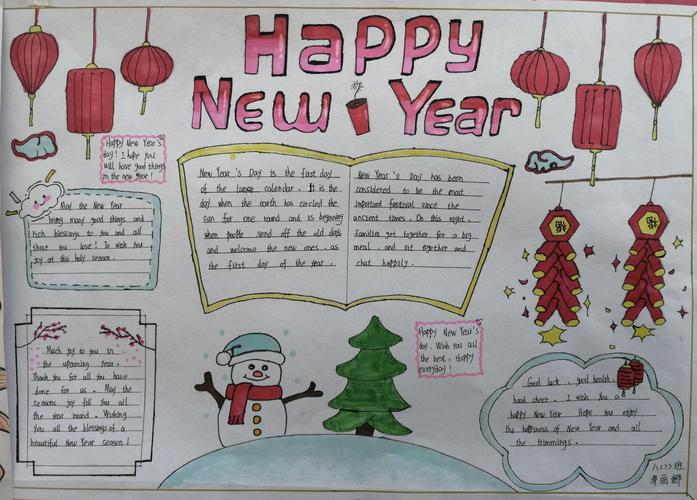 Happy
New Year
Happy New Year's
day! I hope you
will have good things
in the new year!
May the New Year
bring many good things and
rich blessings to you and all
those you love! To wish you
joy at this holy season.
New Year's Day is the first day
of the lunar calendar. It is the
day when the earth has circled the
sun for one round and is beginning
when people send off the old days
and welcome the new ones. as
the first day of the year.
New Year's Day has been
considered to be the most
important festival since the
ancient times. On this night,
families get together for a big
meal, and sit together and
chat happily.
Much joy to you in
the upcoming year.
Thank you for all you have
done for us. May the
seasons joy fill you all
the year round. Wishing
you all the blessings of a
beautiful New Year season!
Happy New Year's
day. Wish you all
the best, Happy
everyday!
Good luck, good health,
hood cheer. I wish you a
happy New Year. Hope you enjoy
the happiness of New Year and all
the trimmings.